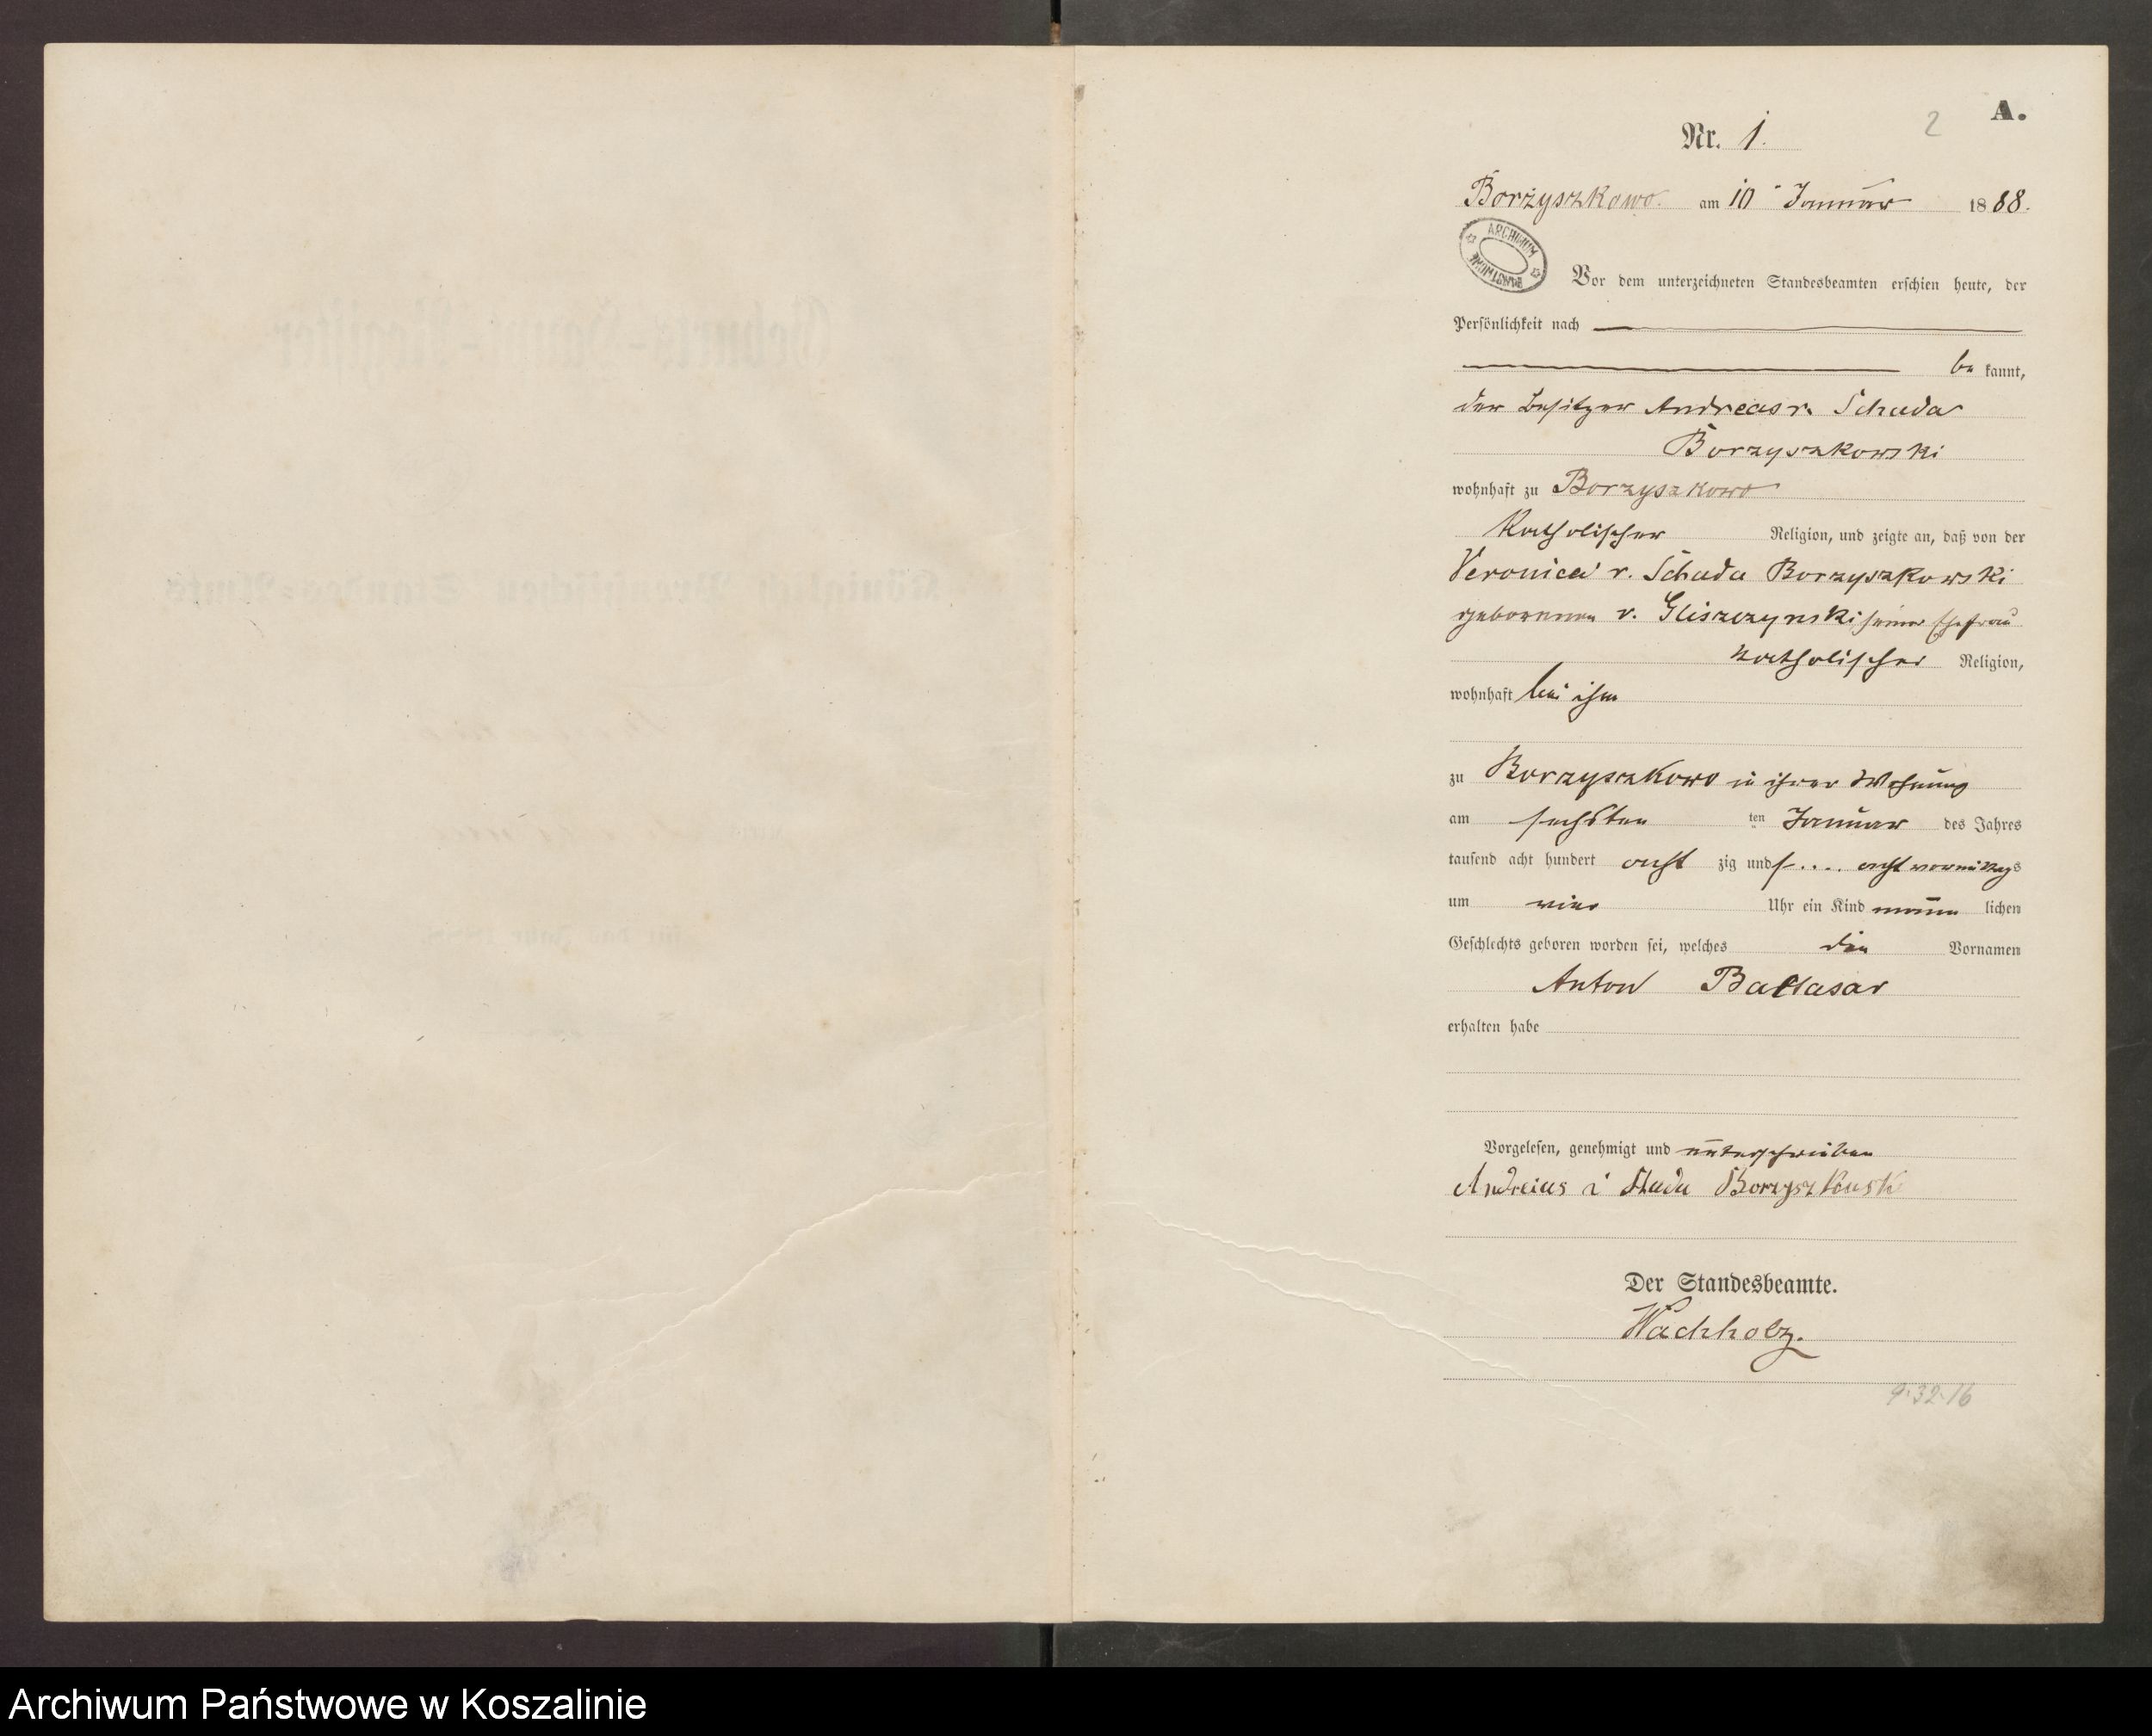 A.
2
Nr. 1.
Borzyszkowo. am 10 Januar 1888.
ARCHIWUM PAŃSTWOWE
Vor dem unterzeichneten Standesbeamten erschien heute, der
Persönlichkeit nach
be kannt,
der Besitzer Andreas v. Schada
Borzyszkowski
wohnhaft zu Borzyszkowo
Katholischer Religion, und zeigte an, daß von der
Veronica v. Schada Borzyszkowski
geborenen v. Gliszczynski seiner Ehefrau
katholischer Religion,
wohnhaft bei ihm
zu Borzyszkowo in ihrer Wohnung
am sechsten ten Januar des Jahres
tausend acht hundert acht zig und acht vormittags
um vier Uhr ein Kind männ lichen
Geschlechts geboren worden sei, welches die Vornamen
Anton Baltasar
erhalten habe
Vorgelesen, genehmigt und unterschrieben
Andreias Borzyszkowsk
Der Standesbeamte.
Wachholz.
9.32.16
Archiwum Państwowe w Koszalinie